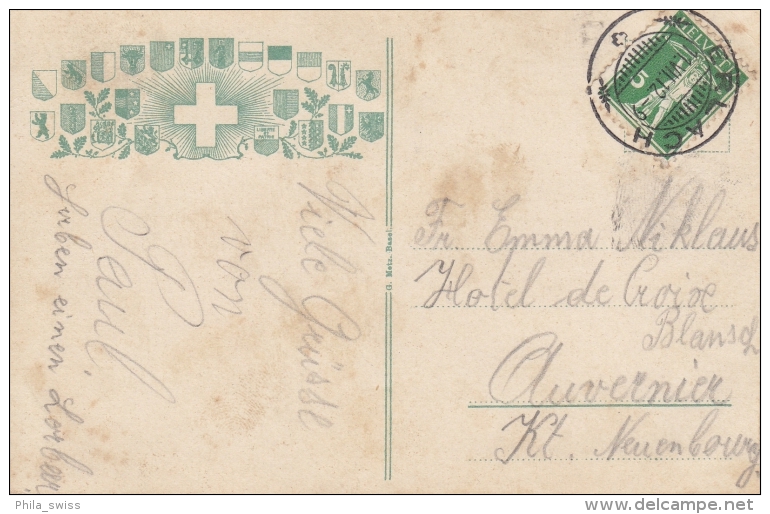 HELVETIA
5
ERLACH
Viele Grüsse
von
Paul
einen
G. Metz, Basel.
Fr. Emma Niklaus
Hotel de Croixe
Blansch
Auvernier
Kt. Neuenbourg
Phila_swiss
delcampe.net